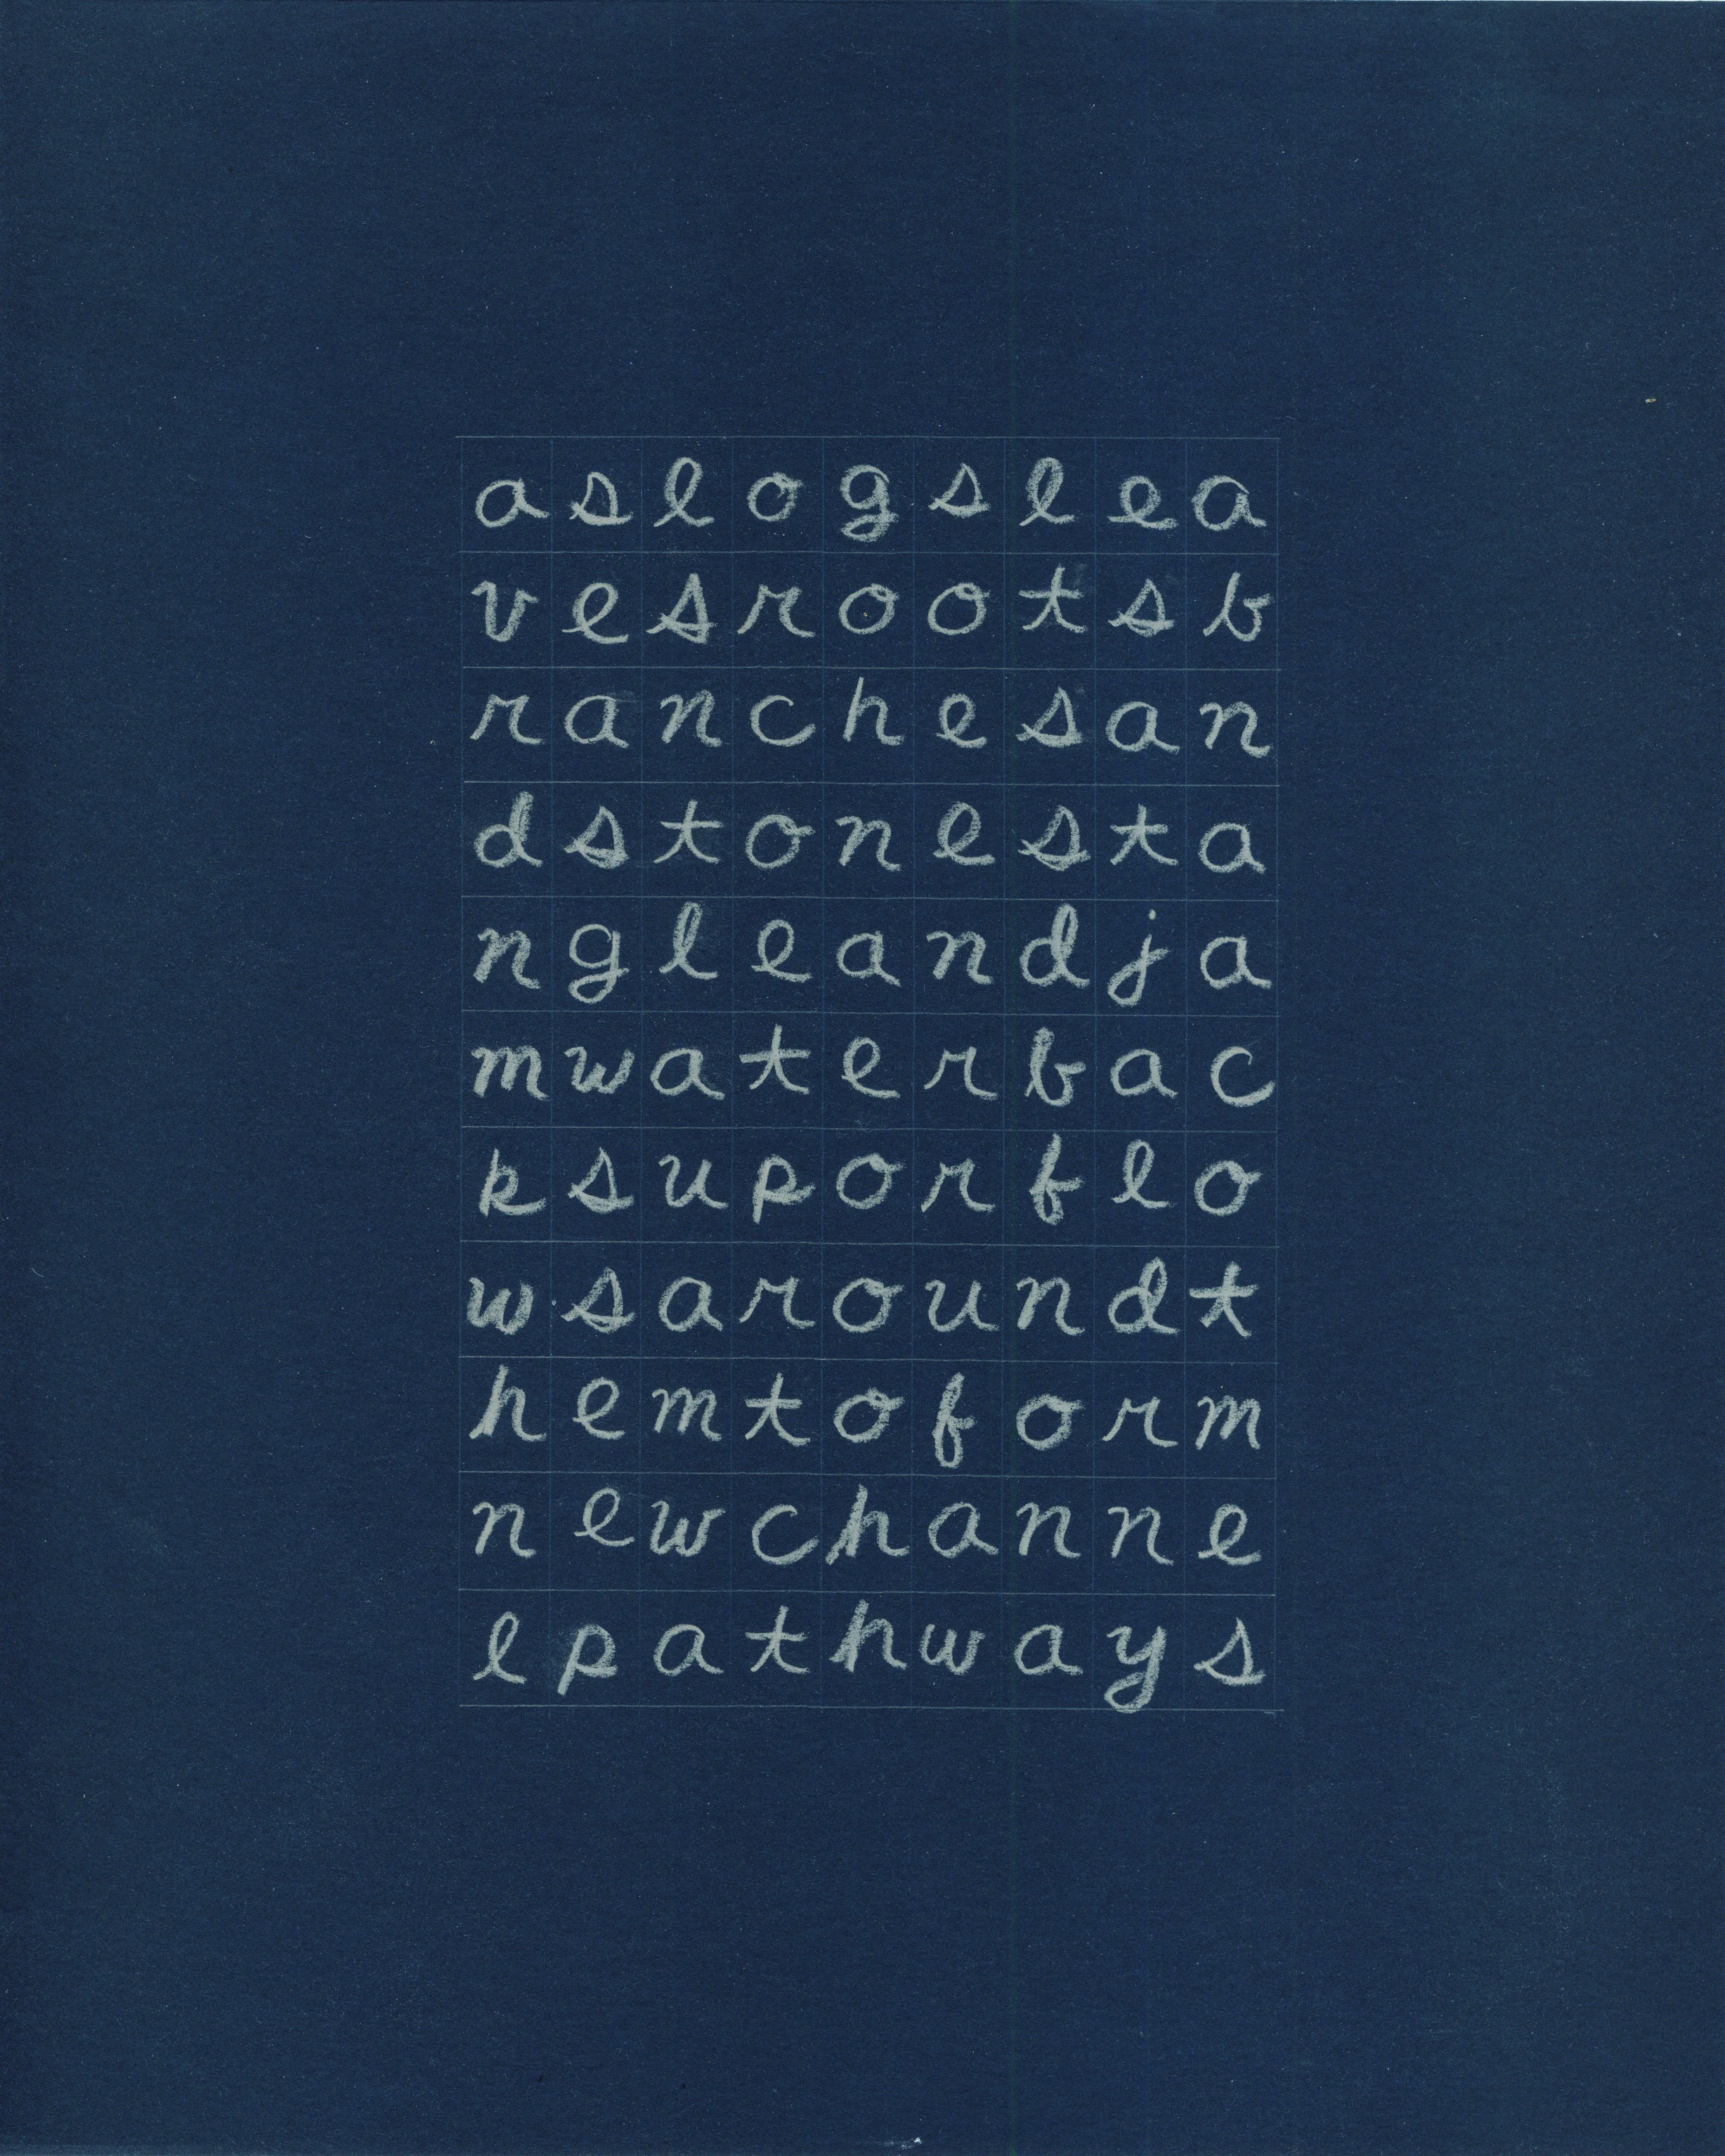 aslogslea
vesrootsb
ranchesan
dstonesta
ngleandja
mwaterbac
ksuporflo
wsaroundt
hemtoform
newchanne
lpathways